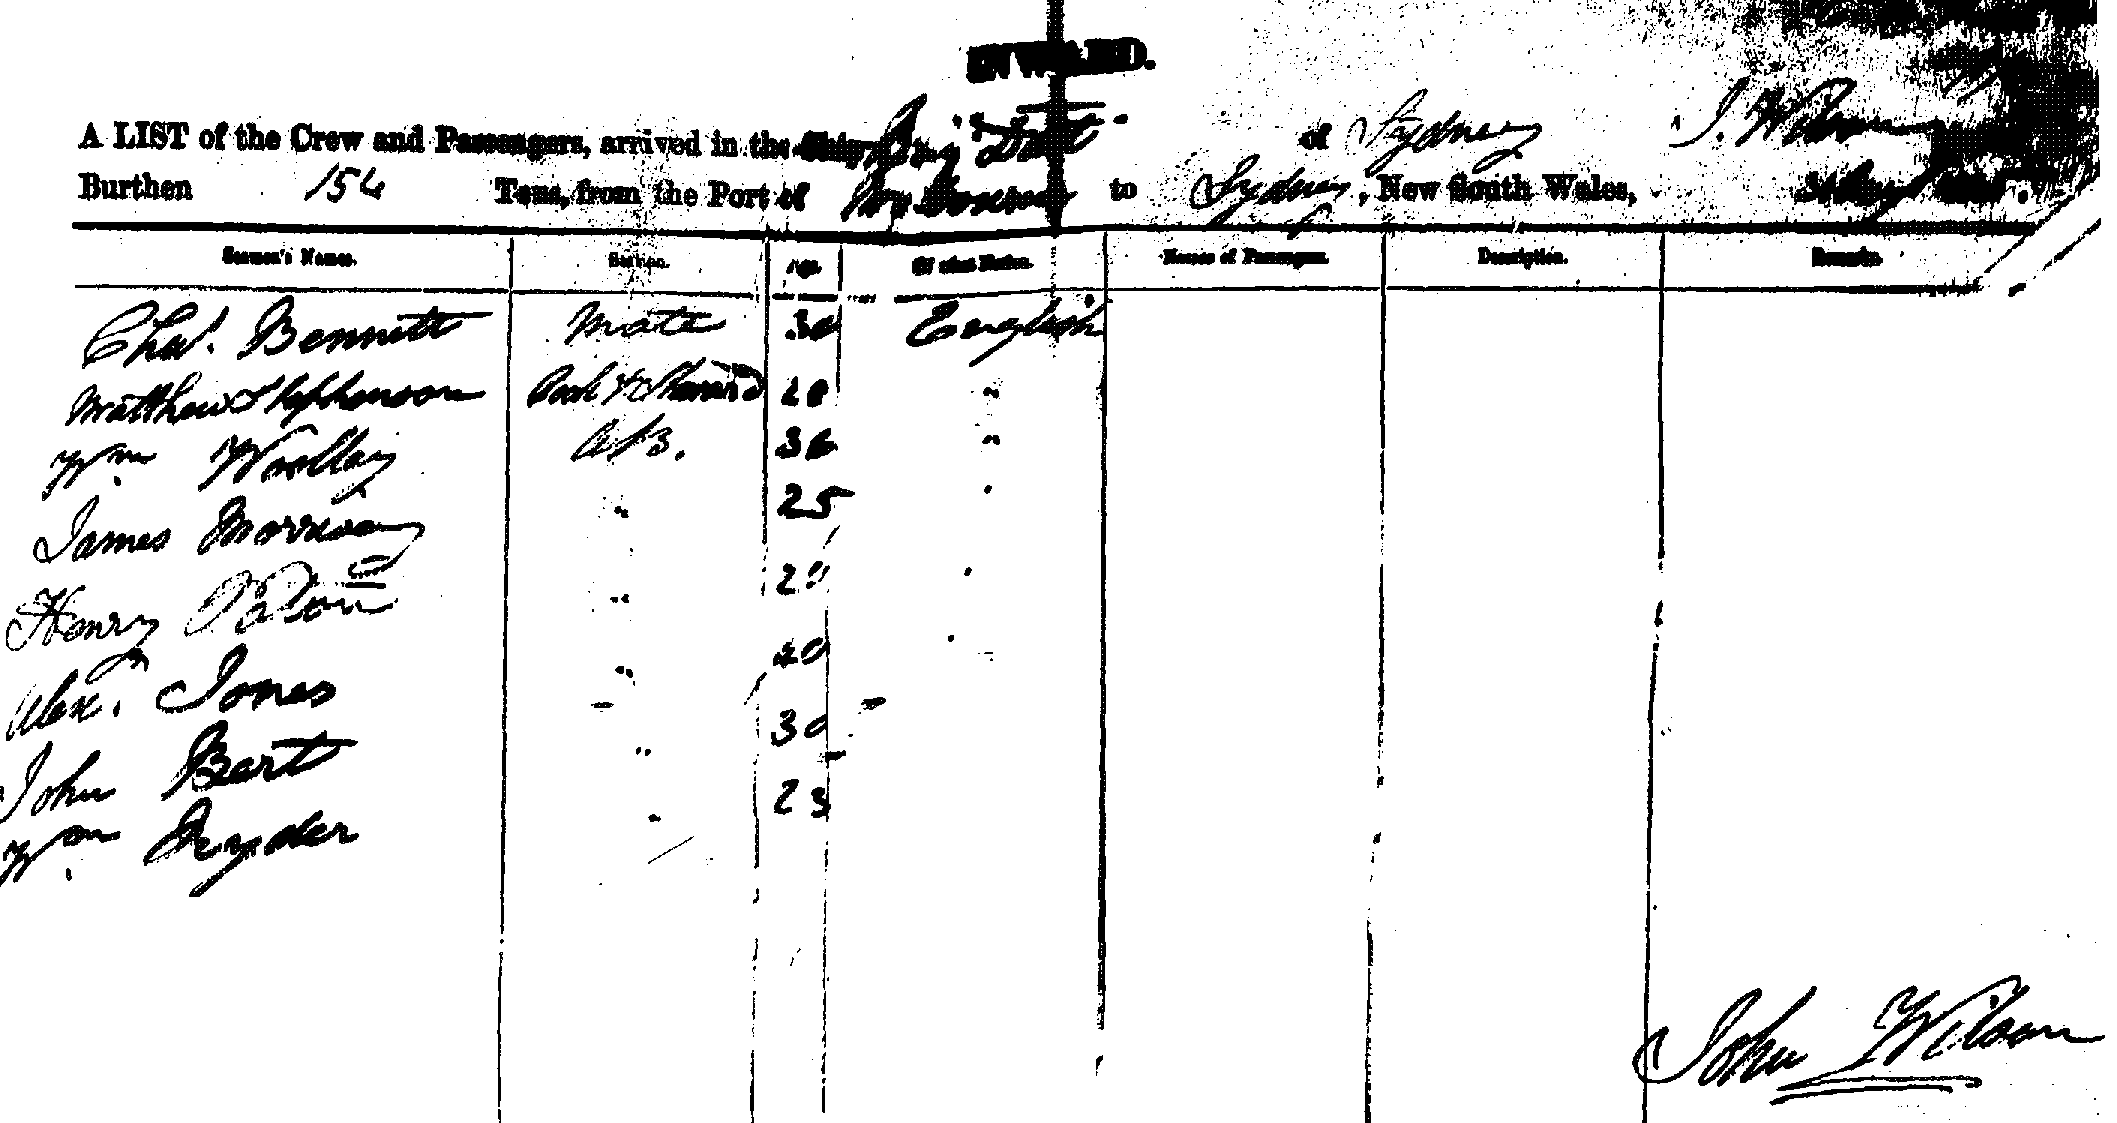 INWARD.
A LIST of the Crew and Passengers, arrived in the Ship Brig "Dart" of Sydney J. Wilson
Burthen 154 Tons, from the Port of to Sydney, New South Wales,
Seamen's Names. Station. Age Of what Nation. Names of Passengers. Description. Remarks.
Chas. Bennett Mate 30 English
Matthew Stephenson Cook & Steward 28 "
Wm Woolley A.B. 36 "
James Morrison " 25 "
Henry " 29 "
Alex. Jones " 40 "
John Bert " 30
Wm Snyder " 23
John Wilson